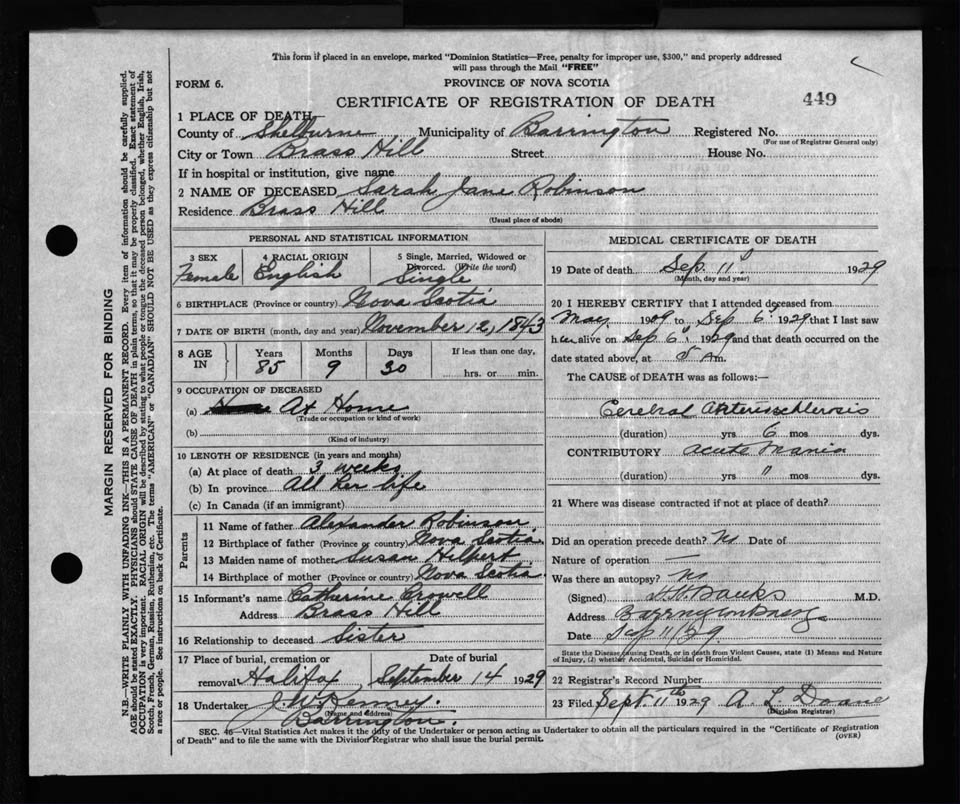 This form if placed in an envelope, marked "Dominion Statistics—Free, penalty for improper use, $300," and properly addressed
will pass through the Mail "FREE"
FORM 6.
PROVINCE OF NOVA SCOTIA
CERTIFICATE OF REGISTRATION OF DEATH
449
1 PLACE OF DEATH
County of Shelburne Municipality of Barrington Registered No.
(For use of Registrar General only)
City or Town Brass Hill Street House No.
If in hospital or institution, give name
2 NAME OF DECEASED Sarah Jane Robinson
Residence Brass Hill
(Usual place of abode)
PERSONAL AND STATISTICAL INFORMATION
3 SEX 4 RACIAL ORIGIN 5 Single, Married, Widowed or
Divorced. (Write the word)
Female English Single
6 BIRTHPLACE (Province or country) Nova Scotia
7 DATE OF BIRTH (month, day and year) November 12, 1843
8 AGE IN Years Months Days If less than one day,
85 9 30 hrs. or min.
9 OCCUPATION OF DECEASED
(a) At Home
(Trade or occupation or kind of work)
(b)
(Kind of industry)
10 LENGTH OF RESIDENCE (in years and months)
(a) At place of death 3 weeks
(b) In province All her life
(c) In Canada (if an immigrant)
Parents
11 Name of father Alexander Robinson
12 Birthplace of father (Province or country) Nova Scotia
13 Maiden name of mother Susan Hilpert
14 Birthplace of mother (Province or country) Nova Scotia
15 Informant's name Catherine Crowell
Address Brass Hill
16 Relationship to deceased Sister
17 Place of burial, cremation or Date of burial
removal Halifax September 14 1929
18 Undertaker
(Name and address)
Barrington.
MEDICAL CERTIFICATE OF DEATH
19 Date of death Sep. 11 1929
(Month, day and year)
20 I HEREBY CERTIFY that I attended deceased from
May 1909 to Sep 6 1929 that I last saw
her alive on Sep 6 1929 and that death occurred on the
date stated above, at 5 Am.
The CAUSE of DEATH was as follows:—
Cerebral Arterioschlerosis
(duration) yrs 6 mos dys.
CONTRIBUTORY acute Mania
(duration) yrs " mos dys.
21 Where was disease contracted if not at place of death?
Did an operation precede death? No Date of
Nature of operation
Was there an autopsy? No
(Signed) Banks M.D.
Address Barrington Passage
Date Sep 11/29
State the Disease causing Death, or in death from Violent Causes, state (1) Means and Nature
of Injury, (2) whether Accidental, Suicidal or Homicidal.
22 Registrar's Record Number
23 Filed Sept. 11th 1929 A. L. Doane
(Division Registrar)
SEC. 46—Vital Statistics Act makes it the duty of the Undertaker or person acting as Undertaker to obtain all the particulars required in the "Certificate of Registration
of Death" and to file the same with the Division Registrar who shall issue the burial permit.
(OVER)
MARGIN RESERVED FOR BINDING
N.B.—WRITE PLAINLY WITH UNFADING INK—THIS IS A PERMANENT RECORD. Every item of information should be carefully supplied.
AGE should be stated EXACTLY. PHYSICIANS should STATE CAUSE OF DEATH in plain terms, so that it may be properly classified. Exact statement of
OCCUPATION is very important. RACIAL ORIGIN will be described by stating to what people or tongue the deceased person belonged, whether English, Irish,
Scotch, French, German, Russian, Ruthenian, etc. The terms "AMERICAN" or "CANADIAN" SHOULD NOT BE USED as they express citizenship but not
a race or people. See instructions on back of Certificate.